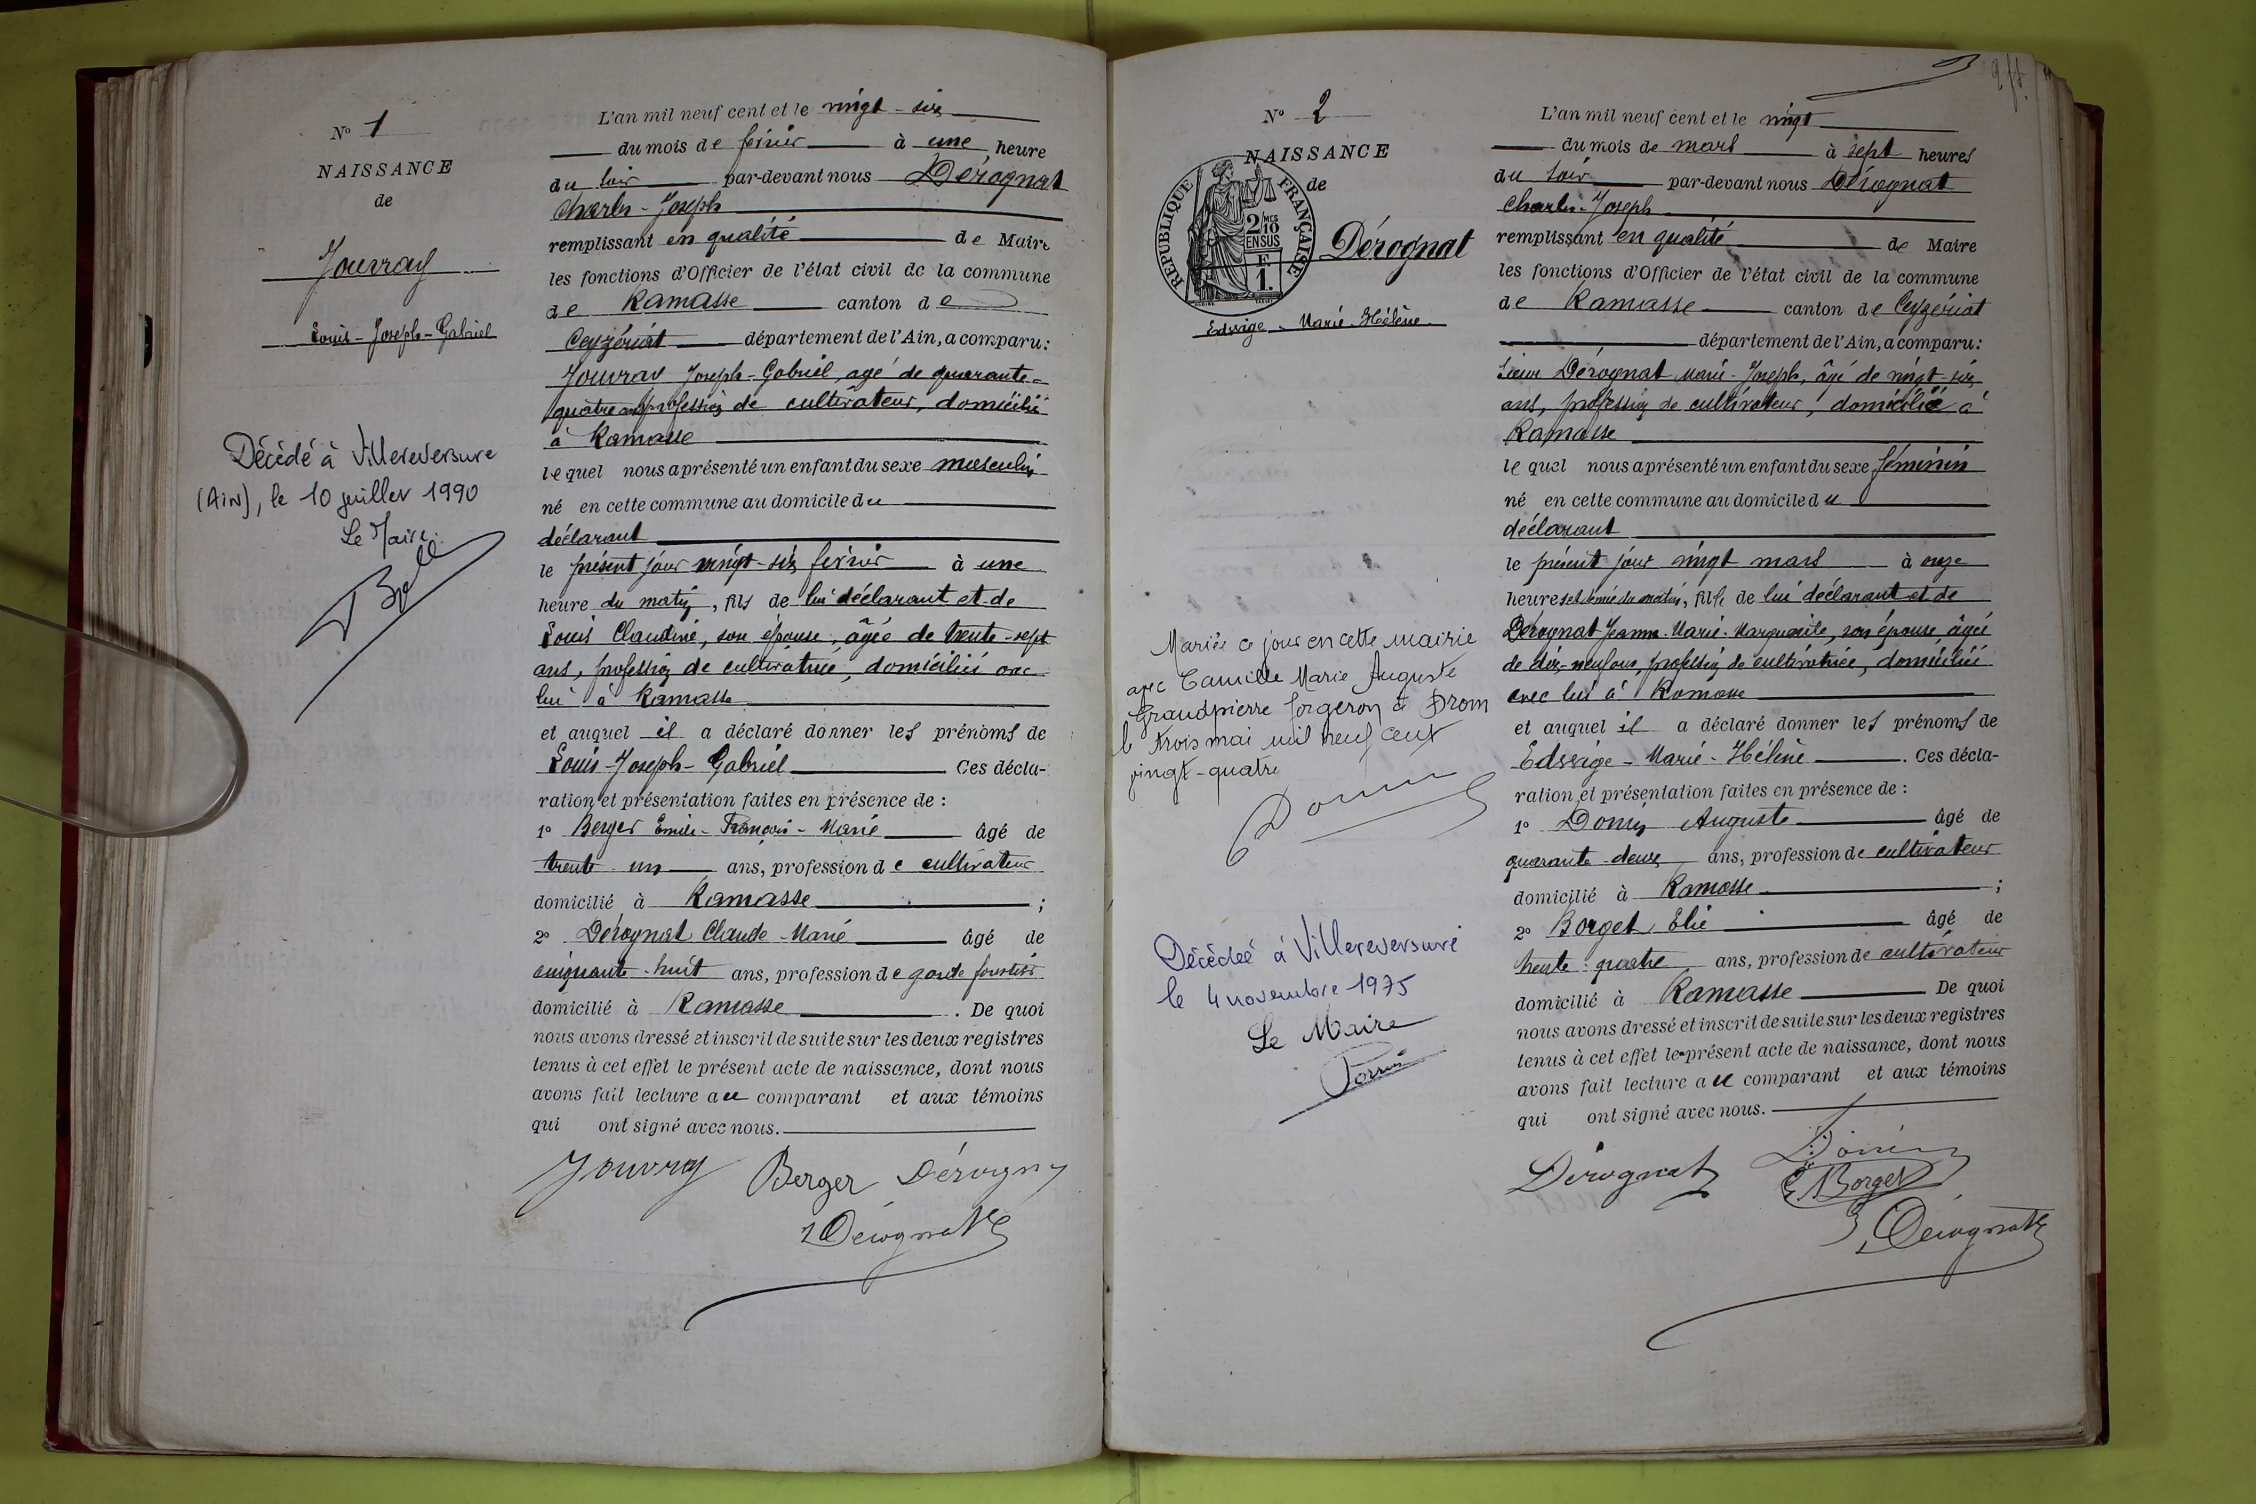 N° 1
NAISSANCE
de
Jouvray
Louis-Joseph-Gabriel
Décédé à Villereversure
(Ain), le 10 juillet 1990
Le Maire.
L'an mil neuf cent et le vingt-six
du mois de février à une heure
du soir par-devant nous Dérognat
Charles-Joseph
remplissant en qualité de Maire
les fonctions d'Officier de l'état civil de la commune
de Ramasse canton de
Ceyzériat département de l'Ain, a comparu:
Jouvray Joseph-Gabriel, agé de quarante-
quatre ans profession de cultivateur, domicilié
à Ramasse
lequel nous a présenté un enfant du sexe masculin
né en cette commune au domicile du
déclarant
le présent jour vingt-six février à une
heure du matin, fils de lui déclarant et de
Louis Claudine, son épouse, âgée de trente-sept
ans, profession de cultivatrice, domiciliée avec
lui à Ramasse
et auquel il a déclaré donner les prénoms de
Louis-Joseph-Gabriel Ces décla-
ration et présentation faites en présence de :
1° Berger Emile-François-Marie âgé de
trente-un ans, profession de cultivateur
domicilié à Ramasse ;
2° Dérognat Claude-Marie âgé de
cinquante-huit ans, profession de garde forestier
domicilié à Ramasse . De quoi
nous avons dressé et inscrit de suite sur les deux registres
tenus à cet effet le présent acte de naissance, dont nous
avons fait lecture au comparant et aux témoins
qui ont signé avec nous.
Jouvray Berger Dérogny
Dérognat
N° 2
NAISSANCE
de
REPUBLIQUE FRANÇAISE
2/10 MES
EN SUS
F
1.
Dérognat
Edwige-Marie-Hélène
Mariée ce jour en cette mairie
avec Camille Marie Auguste
Grandpierre forgeron à Drom
le trois mai mil neuf cent
vingt-quatre
Donin
Décédée à Villereversure
le 4 novembre 1975
Le Maire
Perrin
L'an mil neuf cent et le vingt
du mois de mars à sept heures
du soir par-devant nous Dérognat
Charles-Joseph
remplissant en qualité de Maire
les fonctions d'Officier de l'état civil de la commune
de Ramasse canton de Ceyzériat
département de l'Ain, a comparu:
Sieur Dérognat Marie-Joseph, âgé de vingt-six
ans, profession de cultivateur, domicilié à
Ramasse
lequel nous a présenté un enfant du sexe féminin
né en cette commune au domicile du
déclarant
le présent jour vingt mars à onze
heures et demie du matin, fille de lui déclarant et de
Dérognat Jeanne-Marie-Marguerite, son épouse, âgée
de dix-neuf ans, profession de cultivatrice, domiciliée
avec lui à Ramasse
et auquel il a déclaré donner les prénoms de
Edwige-Marie-Hélène . Ces décla-
ration et présentation faites en présence de :
1° Donin Auguste âgé de
quarante-deux ans, profession de cultivateur
domicilié à Ramasse ;
2° Borget Elie âgé de
trente-quatre ans, profession de cultivateur
domicilié à Ramasse De quoi
nous avons dressé et inscrit de suite sur les deux registres
tenus à cet effet le présent acte de naissance, dont nous
avons fait lecture au comparant et aux témoins
qui ont signé avec nous.
Dérognat Donin
E Borget
Dérognat